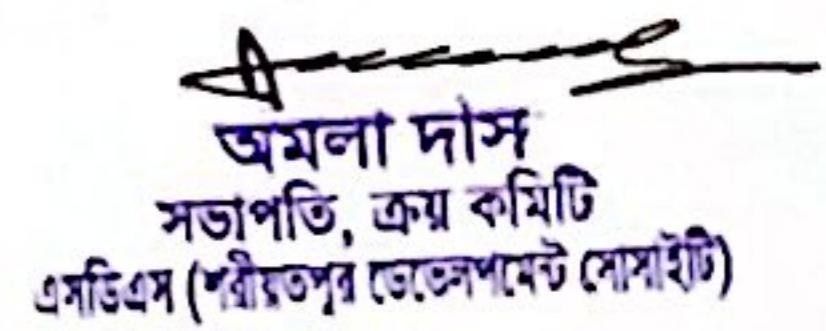 অমলা দাস
সভাপতি, ক্রয় কমিটি
এসডিএস (শরীয়তপুর ডেভেলপমেন্ট সোসাইটি)